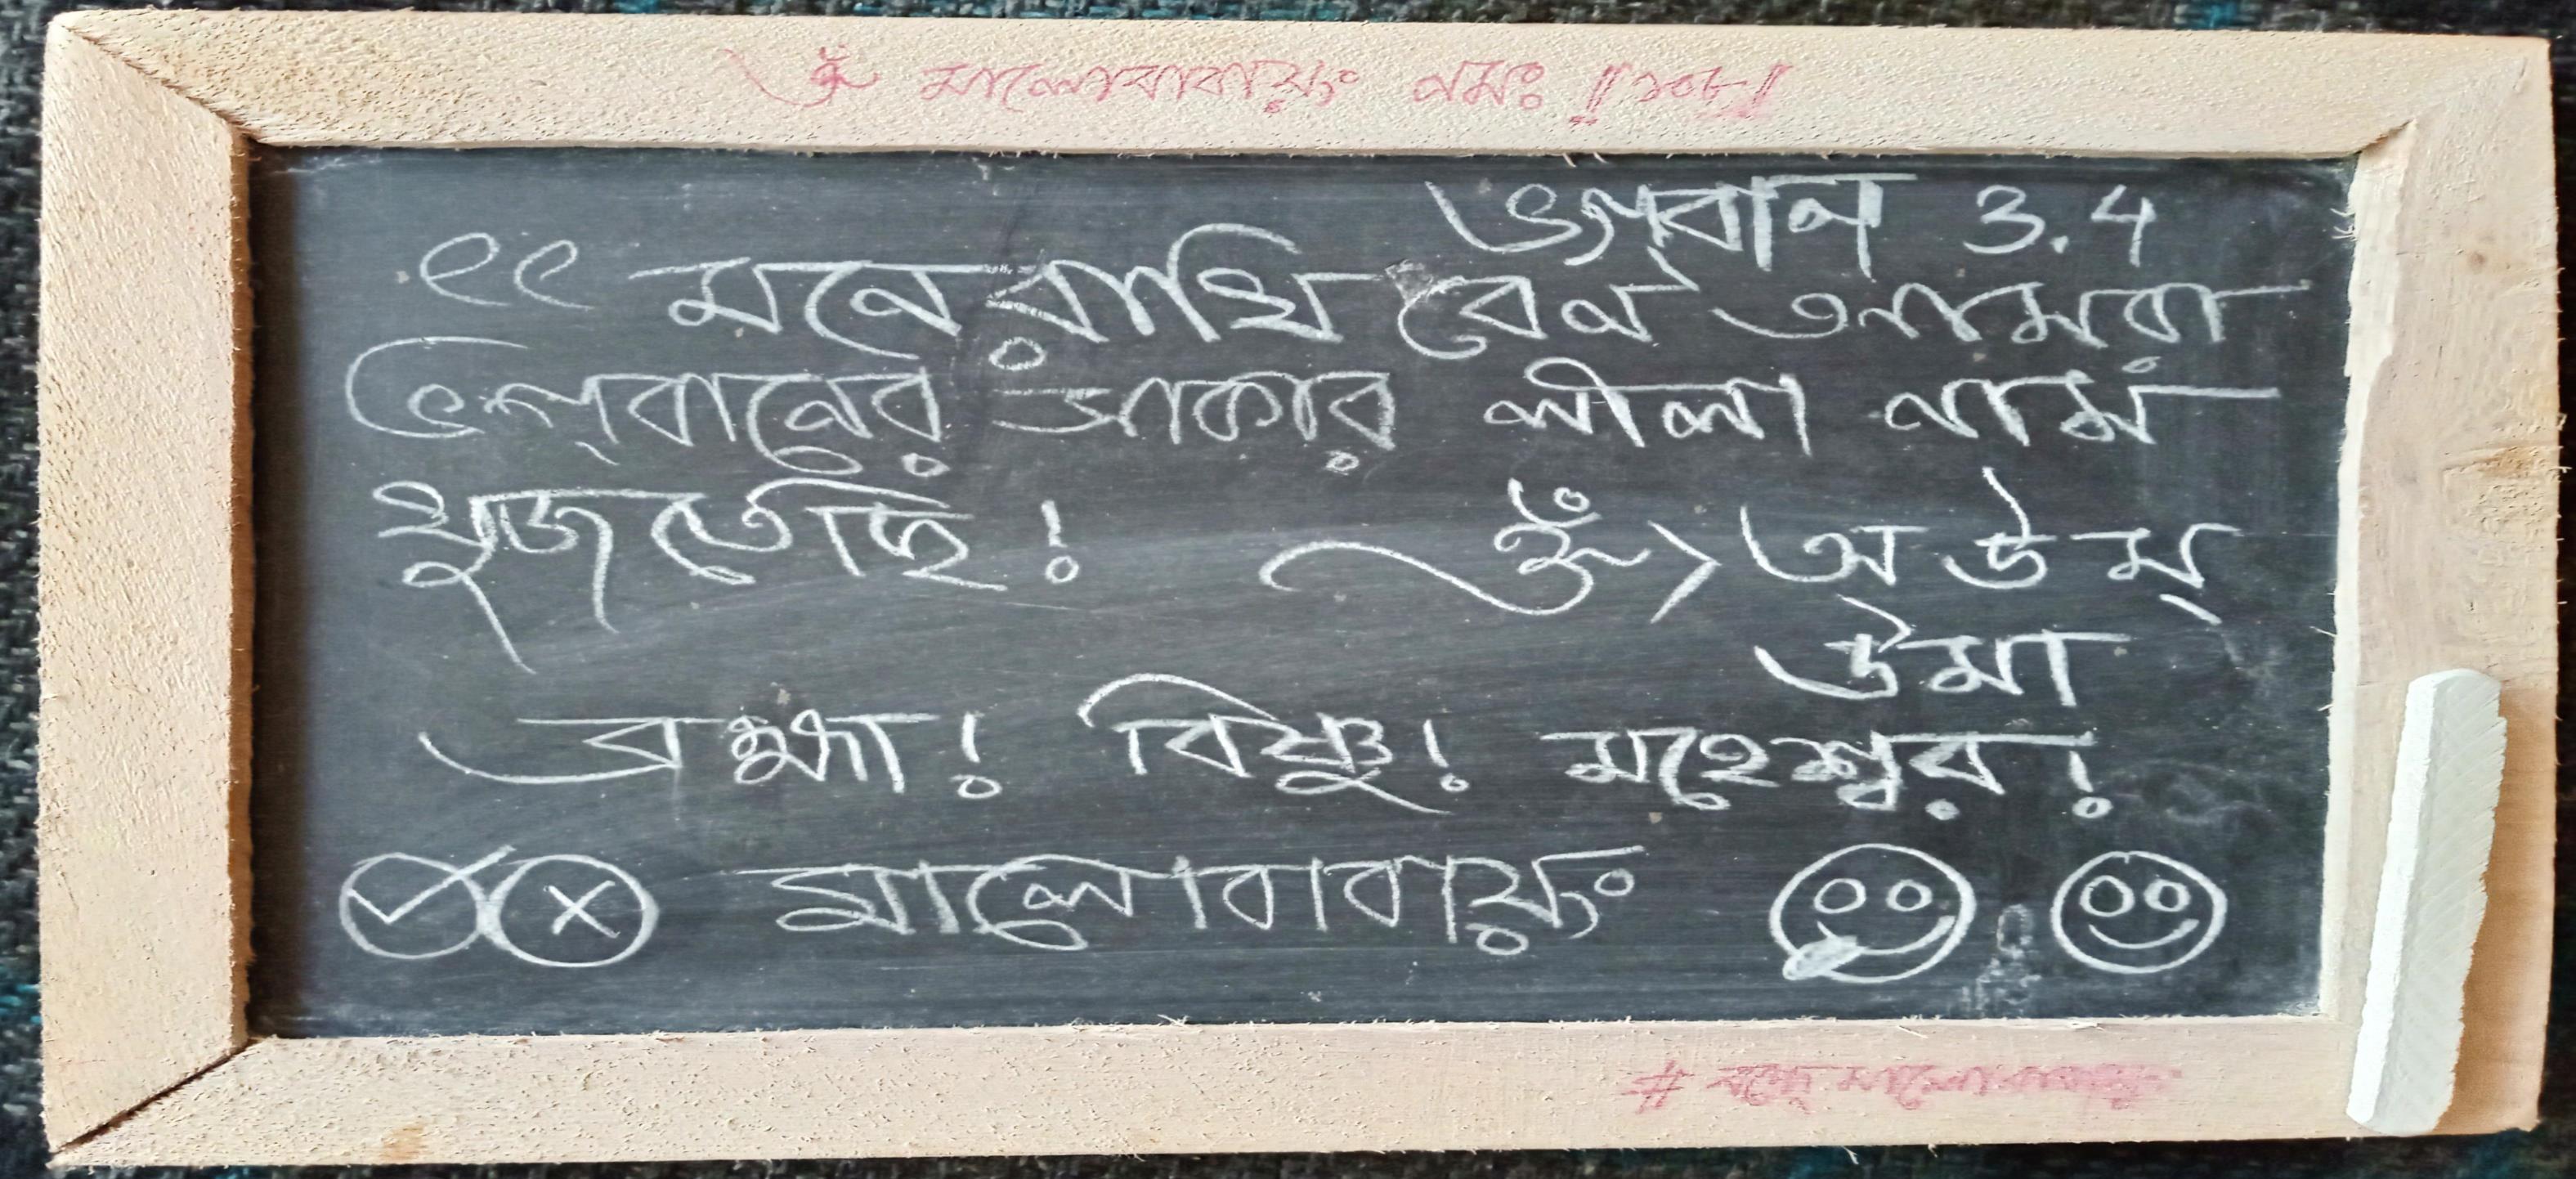 ওঁ মালোবাবায়ং নমঃ ॥১০৮॥
ভগবান 3.4
“ মনে রাখি বেন আমরা
ভগবানের সাকার লীলা নাম
খুজতেছি !
ওঁ > অ উ ম্
উমা
ব্রহ্মা ! বিষ্ণু ! মহেশ্বর !
মালোবাবায়ং